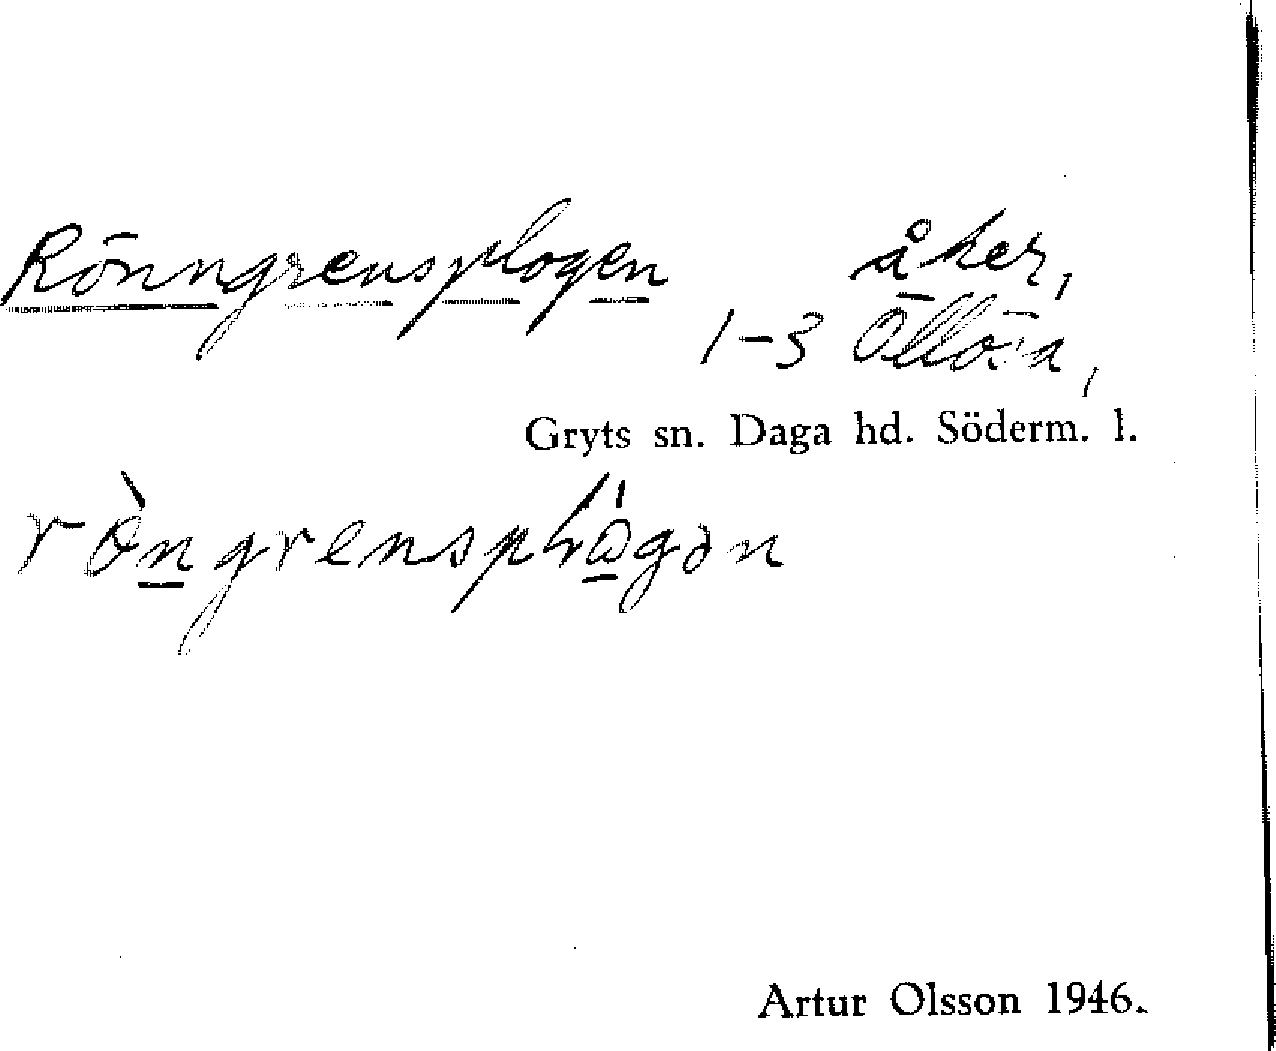 Rönngrensplogen åker,
1-3 Öllösa,
Gryts sn. Daga hd. Söderm. l.
Artur Olsson 1946.